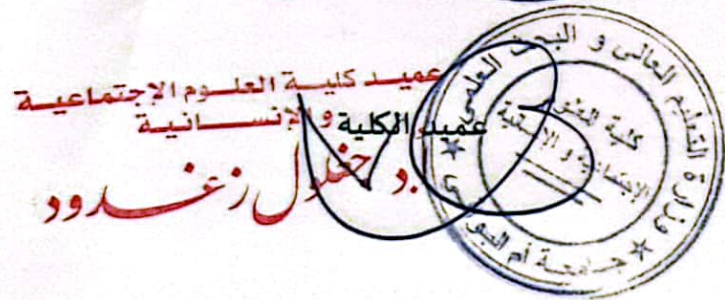 عميد كلية العلوم الإجتماعية
والإنسانية
عميد الكلية
د. زغدود
وزارة التعليم العالي و البحث العلمي
★ جامعة أم البواقي ★
كلية العلوم
الإجتماعية و الإنسانية